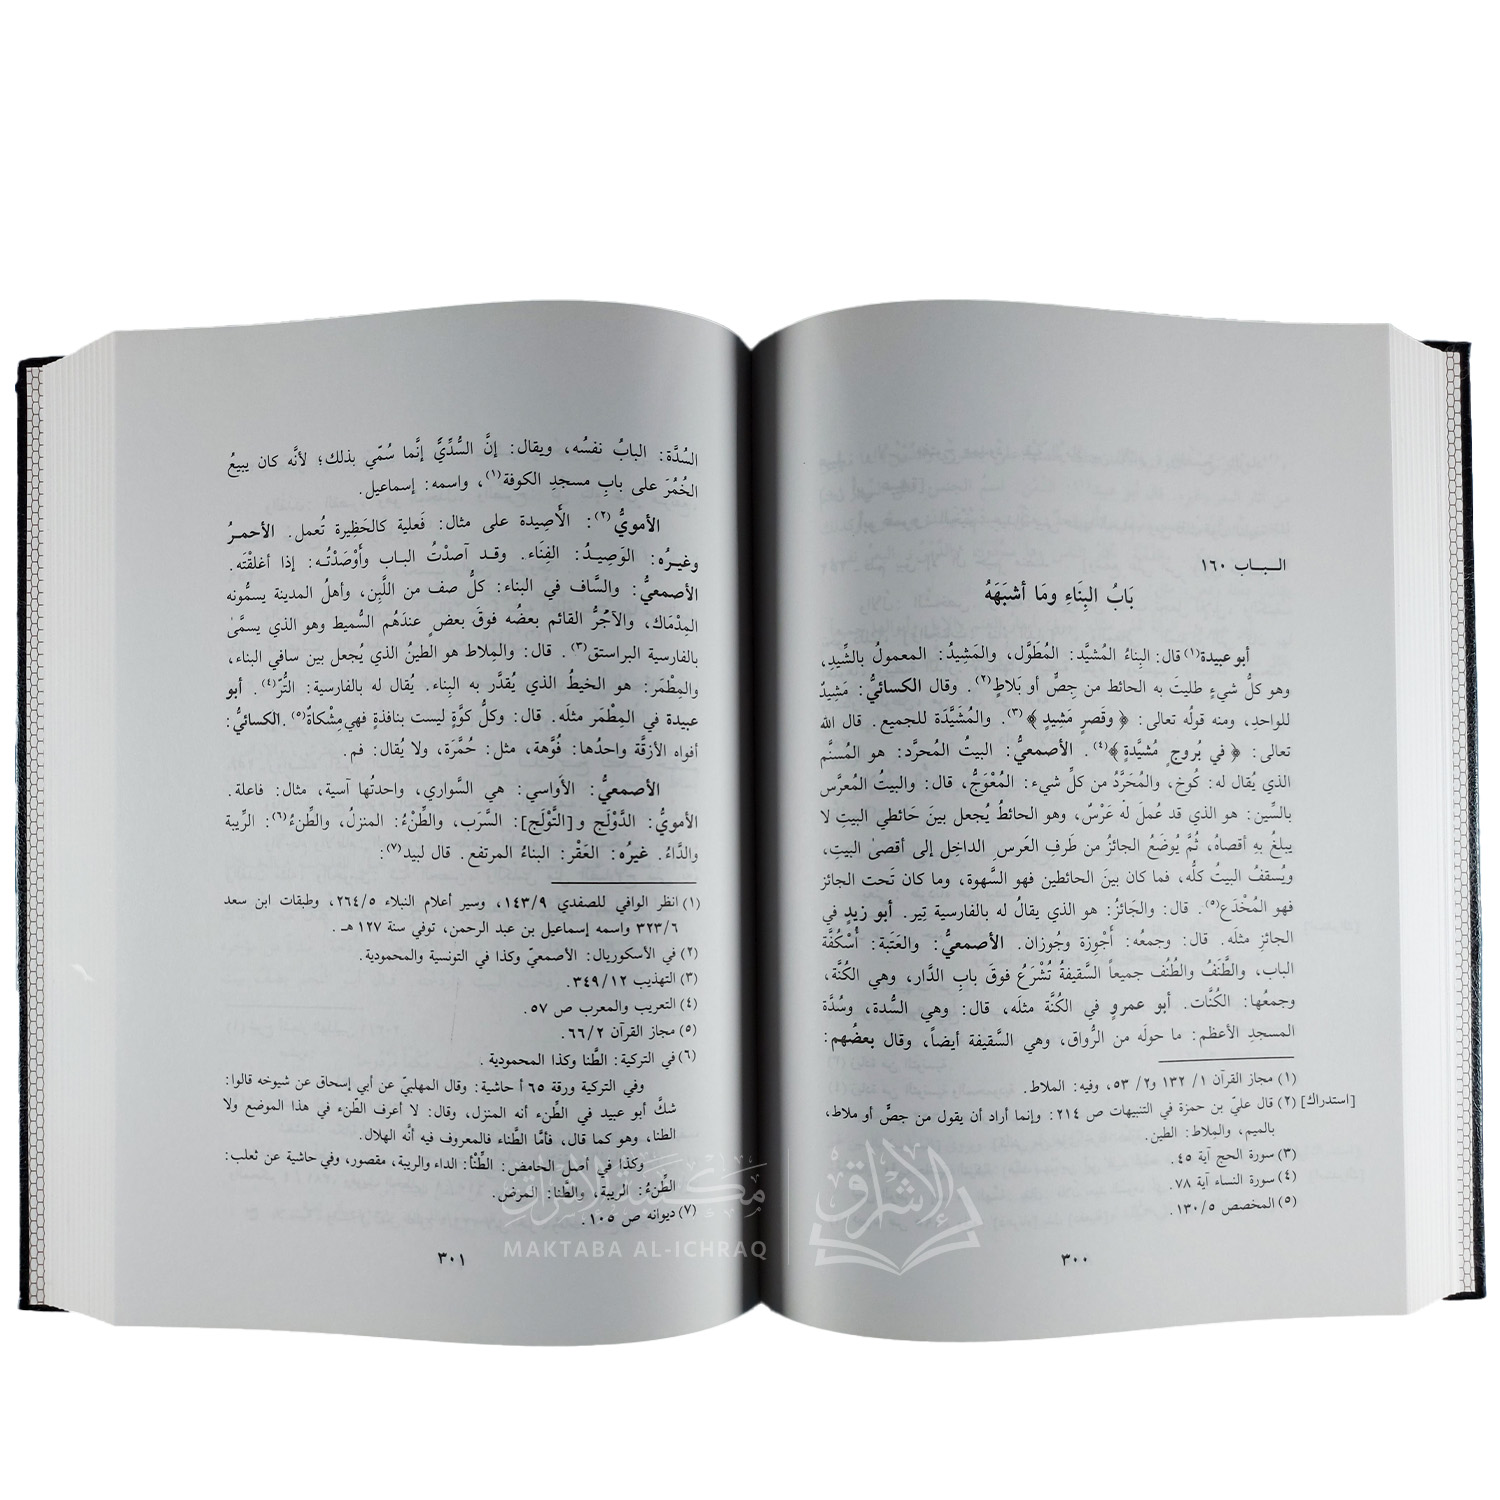 الـبـاب ١٦٠
بَابُ البِنَاءِ ومَا أشبَهَهُ
أبو عبيدة(١) قال: البِناءُ المُشيَّد: المُطَوَّل، والمَشِيدُ: المعمولُ بالشِّيدِ،
وهو كلُّ شيءٍ طليتَ به الحائط من جِصٍّ أو بَلاطٍ(٢). وقال الكسائيُّ: مَشِيدٌ
للواحدِ، ومنه قولُه تعالى: ﴿ وقَصرٍ مَشِيدٍ ﴾(٣). والمُشَيَّدَة للجميع. قال الله
تعالى: ﴿ في بُروجٍ مُشيَّدةٍ ﴾(٤). الأصمعيُّ: البيتُ المُحرَّد: هو المُسنَّم
الذي يُقال له: كُوخ، والمُحَرَّدُ من كلِّ شيء: المُعْوَجُّ، قال: والبيتُ المُعرَّس
بالسِّين: هو الذي قد عُملَ لهُ عَرْسٌ، وهو الحائطُ يُجعل بينَ حَائطي البيتِ لا
يبلغُ بهِ أقصاهُ، ثُمَّ يُوضَعُ الجائزُ من طَرفِ العَرسِ الداخِل إلى أقصىٰ البيتِ،
ويُسقفُ البيتُ كلُّه، فما كان بينَ الحائطين فهو السَّهوة، وما كان تَحت الجائز
فهو المُخْدَع(٥). قال: والجَائزُ: هو الذي يقالُ له بالفارسية تِير. أبو زيدٍ في
الجائزِ مثلَه. قال: وجمعُه: أَجْوِزة وجُوزان. الأصمعيُّ: والعَتَبة: أُسْكُفَّة
الباب، والطَّنَفُ والطُنُف جميعاً السَّقيفةُ تُشْرَعُ فوقَ بابِ الدَّار، وهي الكُنَّة،
وجمعُها: الكُنَّات. أبو عمروٍ في الكُنَّة مثلَه، قال: وهي السُّدة، وسُدَّة
المسجدِ الأعظم: ما حولَه من الرُّواق، وهي السَّقيفة أيضاً، وقال بعضُهم:
(١) مجاز القرآن ١/ ١٣٢ و٢/ ٥٣، وفيه: الملاط.
[استدراك] (٢) قال عليّ بن حمزة في التنبيهات ص ٢١٤: وإنما أراد أن يقول من جصٍّ أو ملاط،
بالميم، والمِلاط: الطين.
(٣) سورة الحج آية ٤٥.
(٤) سورة النساء آية ٧٨.
(٥) المخصص ٥/ ١٣٠.
٣٠٠
السُدَّة: البابُ نفسُه، ويقال: إنَّ السُّدِّيَّ إنَّما سُمّي بذلك؛ لأنَّه كان يبيعُ
الخُمُرَ على بابِ مسجدِ الكوفة(١)، واسمه: إسماعيل.
الأمويُّ(٢): الأَصِيدة على مثال: فَعلية كالحَظِيرة تُعمل. الأحمـرُ
وغيـرُه: الوَصِيـدُ: الفِنَاء. وقـد آصدْتُ البـاب وأَوْصَدْتُـه: إذا أغلقْتَه.
الأصمعيُّ: والسَّاف في البناء: كلُّ صف من اللَّبِن، وأهلُ المدينة يسمُّونه
المِدْمَاك، والآجُرُّ القائم بعضُه فوقَ بعضٍ عندَهُم السُّميط وهو الذي يسمَّىٰ
بالفارسية البراستق(٣). قال: والمِلاط هو الطينُ الذي يُجعل بين سافي البناء،
والمِطْمَر: هو الخيطُ الذي يُقدَّر به البِناء. يُقال له بالفارسية: التُّرّ(٤). أبو
عبيدة في المِطْمَر مثلَه. قال: وكلُّ كوَّةٍ ليست بنافذةٍ فهي مِشْكاةٌ(٥). الكسائيُّ:
أفواه الأزقَّة واحدُها: فُوَّهة، مثل: حُمَّرَة، ولا يُقال: فم.
الأصمعيُّ: الأَواسي: هي السَّواري، واحدتُها آسية، مثال: فاعلة.
الأمويُّ: الدَّوْلَج و[التَّوْلَج]: السَّرَب، والطِّنْءُ: المنزلُ، والطِّنءُ(٦): الرِّيبة
والدَّاءُ. غيرُه: العَقْر: البناءُ المرتفع. قال لبيد(٧):
(١) انظر الوافي للصفدي ٩/ ١٤٣، وسير أعلام النبلاء ٥/ ٢٦٤، وطبقات ابن سعد
٦/ ٣٢٣ واسمه إسماعيل بن عبد الرحمن، توفي سنة ١٢٧ هـ.
(٢) في الأسكوريال: الأصمعيّ وكذا في التونسية والمحمودية.
(٣) التهذيب ١٢/ ٣٤٩.
(٤) التعريب والمعرب ص ٥٧.
(٥) مجاز القرآن ٢/ ٦٦.
(٦) في التركية: الطَّنا وكذا المحمودية.
وفي التركية ورقة ٦٥ أ حاشية: وقال المهلبيّ عن أبي إسحاق عن شيوخه قالوا:
شكَّ أبو عبيد في الطِّنء أنه المنزل، وقال: لا أعرف الطِّنء في هذا الموضع ولا
الطنا، وهو كما قال، فأمَّا الطَّناء فالمعروف فيه أنَّه الهلال.
وكذا في أصل الحامض: الطِّنْأ: الداء والريبة، مقصور، وفي حاشية عن ثعلب:
الطِّنءُ: الريبة، والطَّنا: المرض.
(٧) ديوانه ص ١٠٥.
٣٠١
مكتبة الإشراق
MAKTABA AL-ICHRAQ
الإشراق